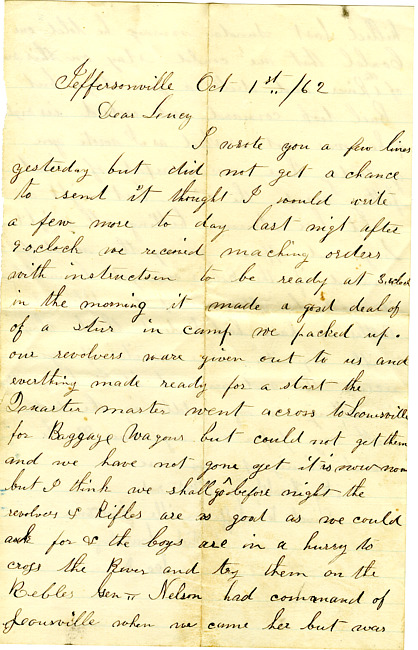 Jeffersonville Oct 1st /62
Dear Lancy
I wrote you a few lines
yesterday but did not get a chance
to send it thought I would write
a few more to day last nigt after
9 o,clock we received maching orders
with instructsin to be ready at 3,o,clock
in the morning it made a good deal of
of a sturr in camp we packed up.
our revolvers ware given out to us and
everthing made ready for a start the
master went across to Louisville
for Baggage Wagons but could not get them
and we have not gone yet it is now noon
but I think we shall go before night the
revolvers & Rifles are as good as we could
ask for & the boys are in a hurry to
cross the River and try them on the
Rebbles Gen Nelson had command of
Leouisville when we came her but was